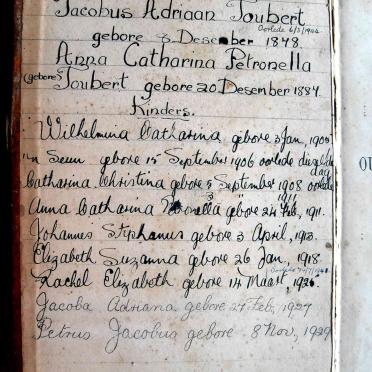 Jacobus Adriaan Joubert
Oorlede 6/3/1944
gebore 8 Desember 1878.
Anna Catharina Petronella
(gebore) Joubert gebore 20 Desember 1884.
Kinders.
Wilhelmina Catharina gebore 3 Jan, 1905
'n Seun gebore 15 September 1906 oorlede dieselfde
dag
Catharina Christina gebore 5 September 1908 oorlede
1911
Anna Catharina gebore 24 Feb, 1911.
Johannes Stephanus gebore 3 April, 1913.
Elizabeth Suzanna gebore 26 Jan, 1918.
Rachel Elizabeth gebore 14 Maart, 1926.
Jacoba Adriana gebore 27 Feb, 1927
Petrus Jacobus gebore 8 Nov, 1929
OU